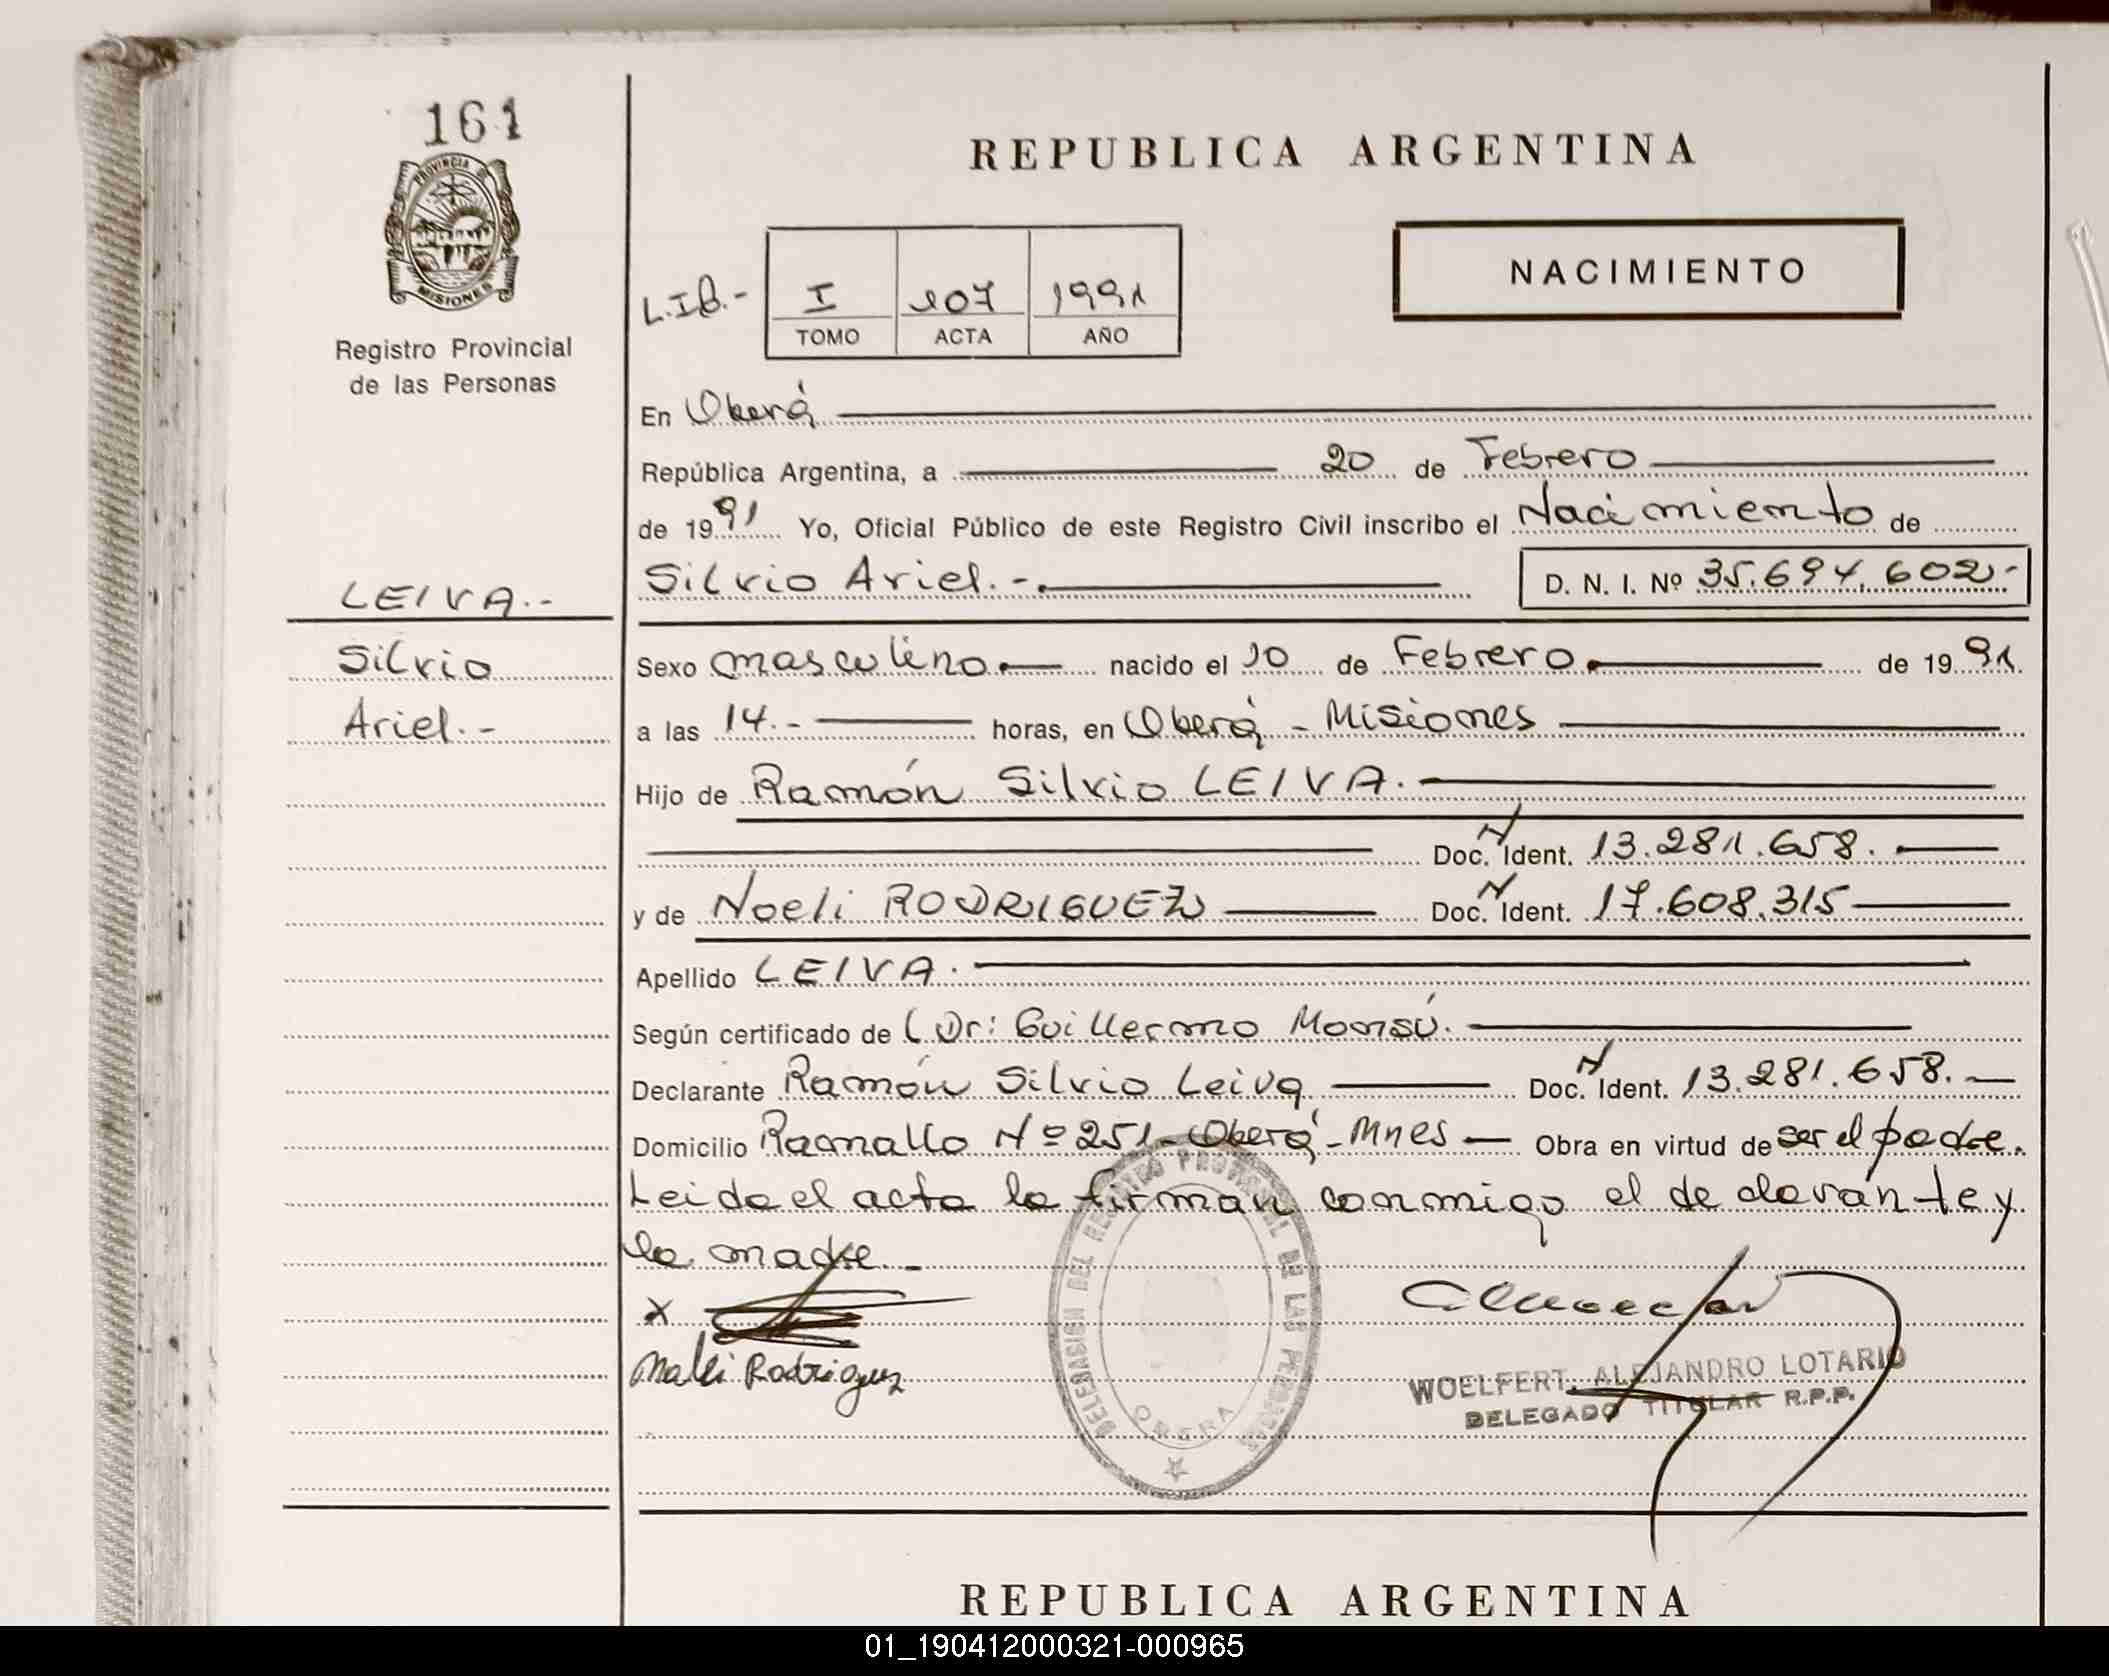 161
PROVINCIA DE
MISIONES
Registro Provincial
de las Personas
LEIVA.-
Silvio
Ariel.-
REPUBLICA ARGENTINA
L.IB.- I 107 1991
TOMO ACTA AÑO
NACIMIENTO
En Oberá
República Argentina, a 20 de Febrero
de 1991 Yo, Oficial Público de este Registro Civil inscribo el Nacimiento de
Silvio Ariel.- D. N. I. Nº 35.694.602-
Sexo masculino nacido el 10 de Febrero de 1991
a las 14.- horas, en Oberá - Misiones
Hijo de Ramón Silvio LEIVA.
Doc. N Ident. 13.281.658.
y de Noeli RODRIGUEZ Doc. N Ident. 17.608.315
Apellido LEIVA.
Según certificado de Dr: Guillermo Monsú.
Declarante Ramón Silvio Leiva Doc. N Ident. 13.281.658.
Domicilio Ramallo Nº 251-Oberá-Mnes Obra en virtud de ser el padre.
Leida el acta la firman conmigo el declarante y
la madre.-
x
Noeli Rodriguez
DELEGASION DEL REGISTRO PROVINCIAL DE LAS PERSONAS
OBERA
WOELFERT, ALEJANDRO LOTARIO
DELEGADO TITULAR R.P.P.
REPUBLICA ARGENTINA
01_190412000321-000965